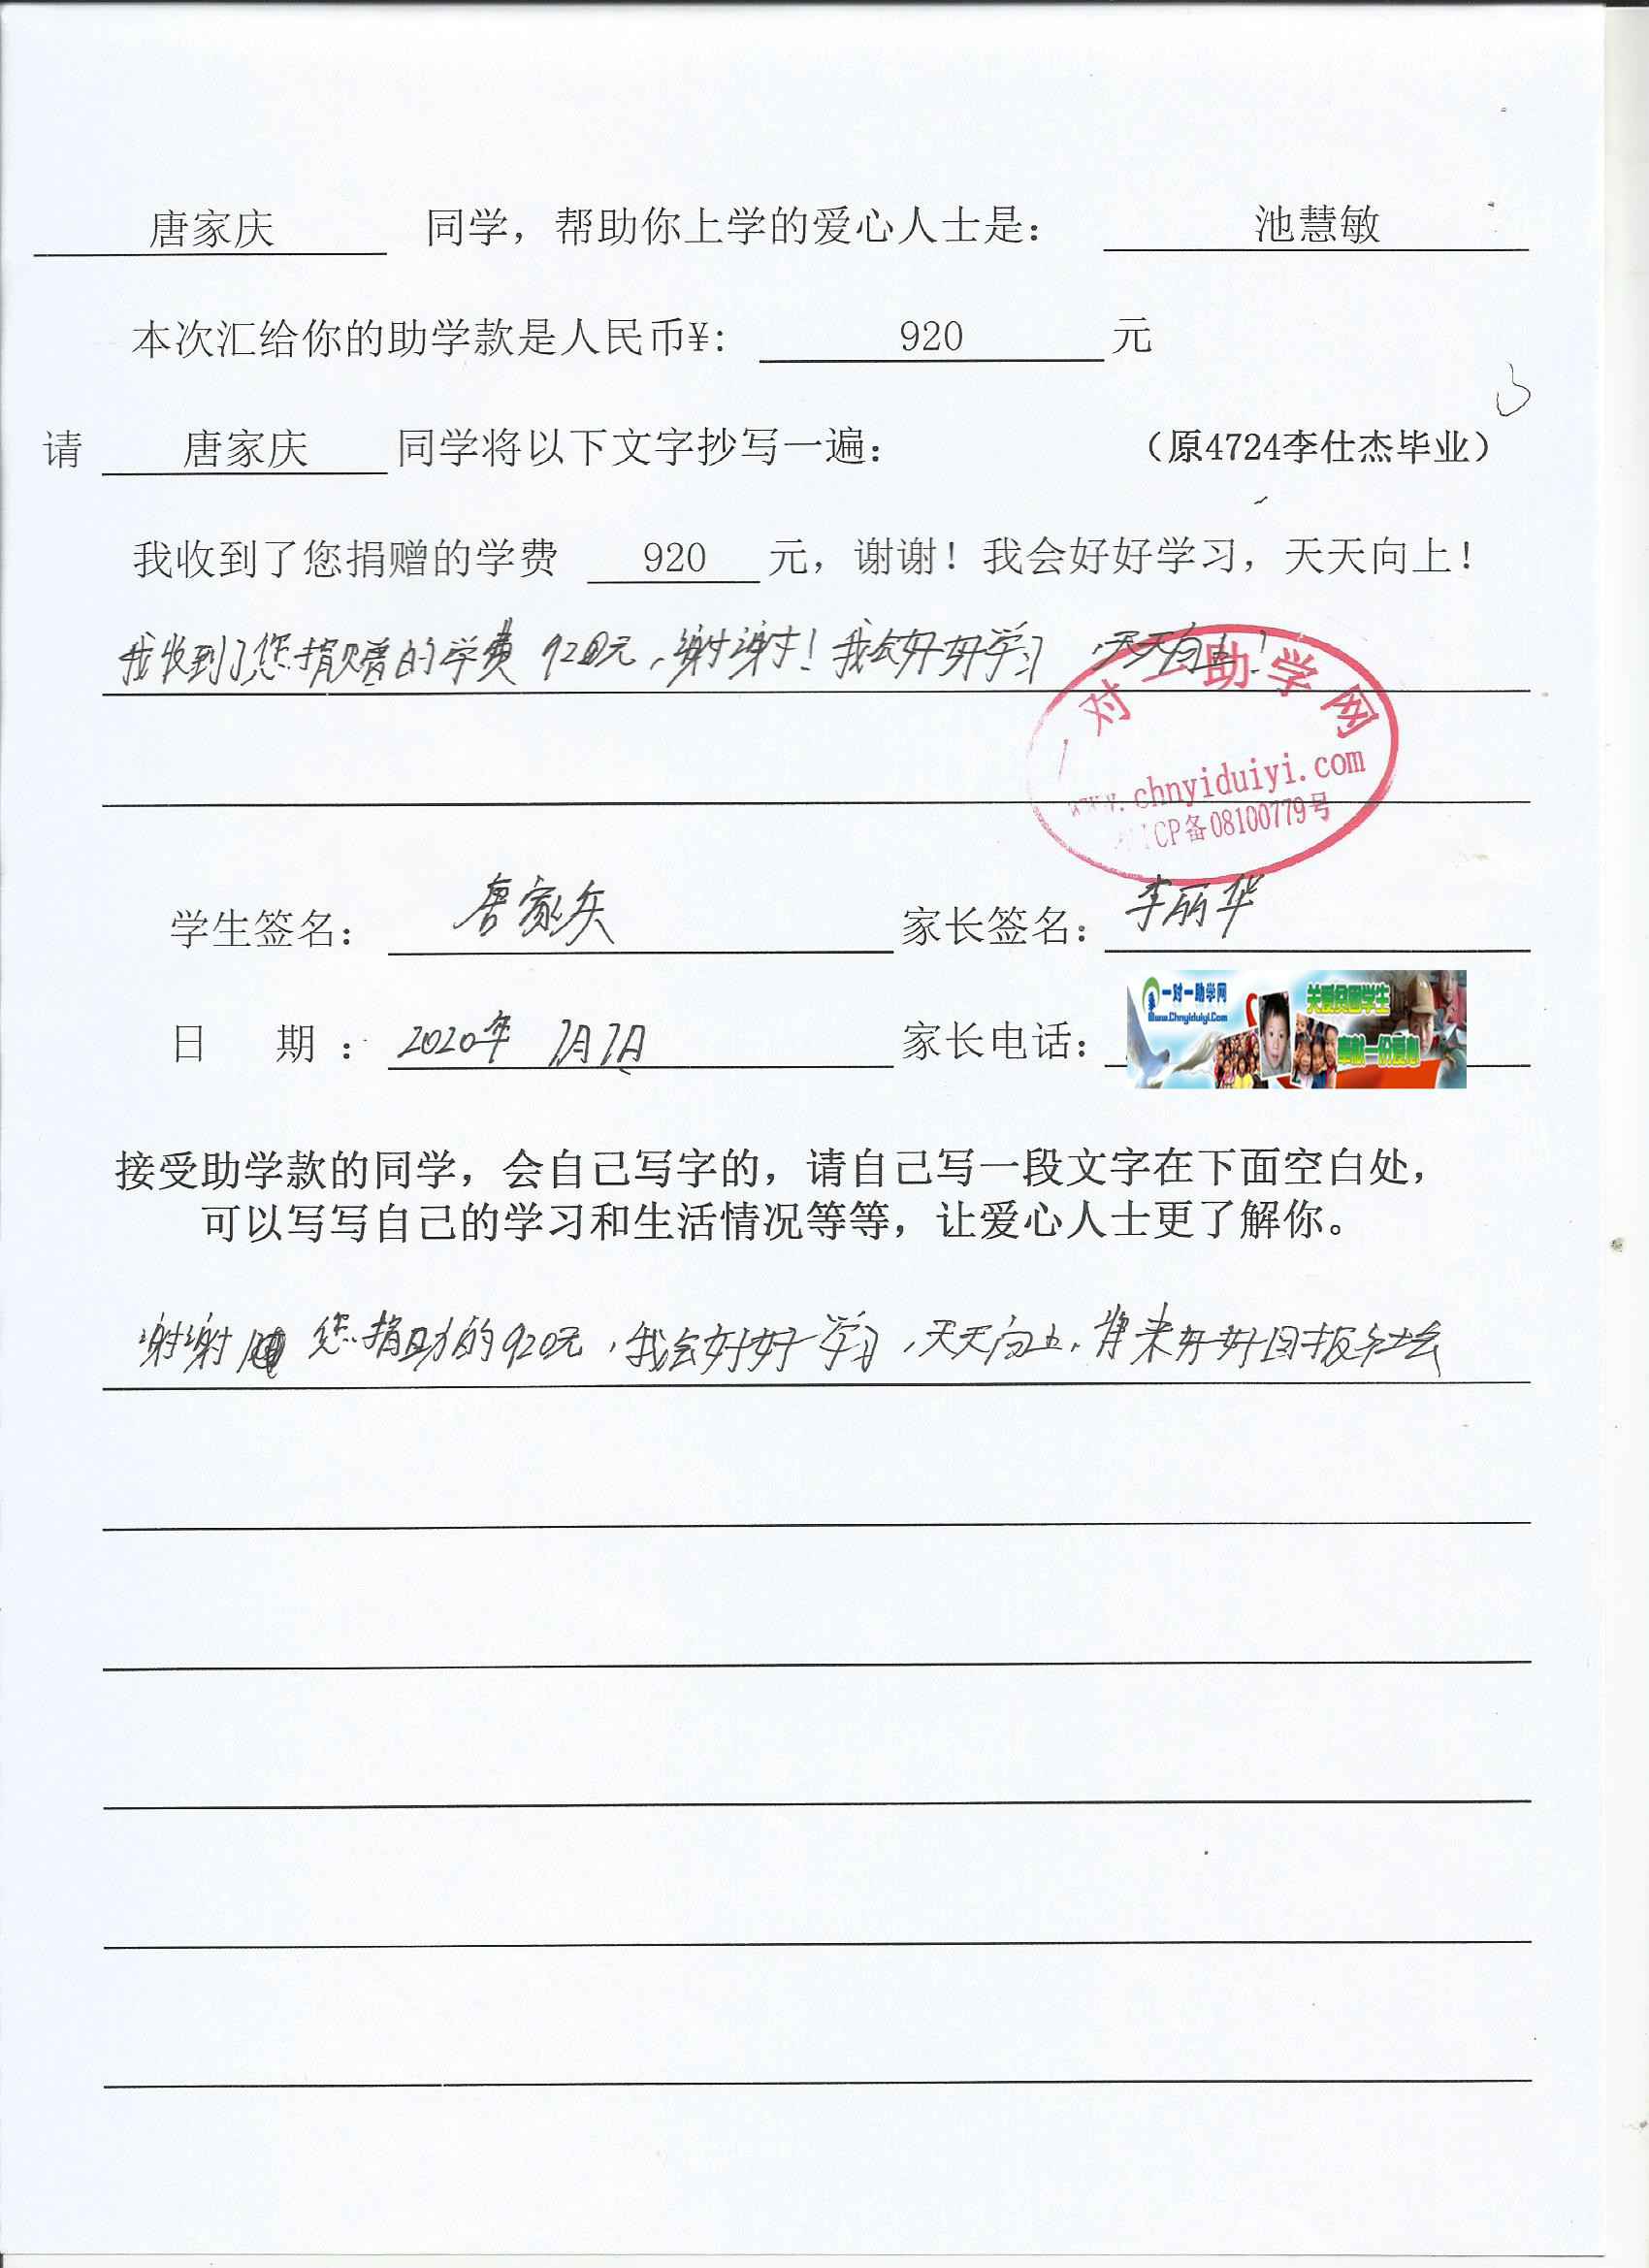 唐家庆 同学，帮助你上学的爱心人士是： 池慧敏
本次汇给你的助学款是人民币¥： 920 元
请 唐家庆 同学将以下文字抄写一遍： （原4724李仕杰毕业）
我收到了您捐赠的学费 920 元，谢谢！我会好好学习，天天向上！
我收到了您捐赠的学费 920元，谢谢！我会好好学习 ，天天向上！
一对一助学网
www.chnyiduiyi.com
ICP备08100779号
学生签名： 唐家庆 家长签名： 李丽华
日 期： 2020年 7月7日 家长电话：
一对一助学网
Www.Chnyiduiyi.Com
关爱贫困学生
奉献一份爱心
接受助学款的同学，会自己写字的，请自己写一段文字在下面空白处，
可以写写自己的学习和生活情况等等，让爱心人士更了解你。
谢谢 您捐助的920元，我会好好学习，天天向上，将来好好回报社会